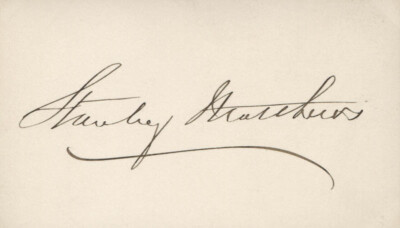 Stanley Matthews